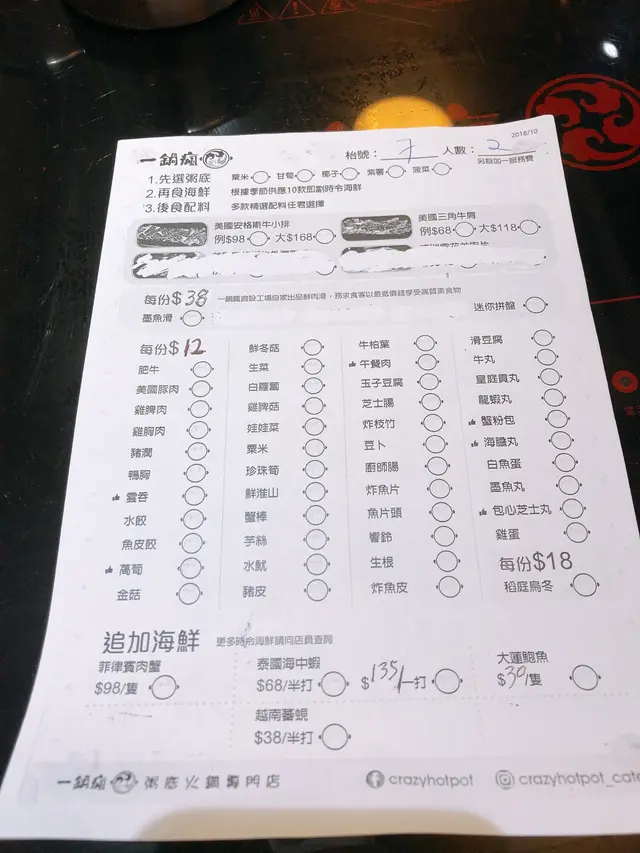 2018/10
一鍋瘋 枱號：7 人數：2
另設加一服務費
1.先選粥底 粟米 甘筍 椰子 紫薯 菠菜
2.再食海鮮 根據季節供應10款即劏時令海鮮
3.後食配料 多款精選配料任君選擇
美國安格斯牛小排
例$98 大$168
美國三角牛肩
例$68 大$118
每份$38 一鍋瘋自設工場自家出品鮮肉滑，務求食客以最抵價錢享受高質素食物
墨魚滑
迷你拼盤
每份$12
肥牛
美國豚肉
雞脾肉
雞胸肉
豬潤
鴨胸
雲吞
水餃
魚皮餃
萵筍
金菇
鮮冬菇
生菜
白蘿蔔
雞脾菇
娃娃菜
粟米
珍珠筍
鮮淮山
蟹棒
芋絲
水魷
豬皮
牛柏葉
午餐肉
玉子豆腐
芝士腸
炸枝竹
豆卜
廚師腸
炸魚片
魚片頭
響鈴
生根
炸魚皮
滑豆腐
牛丸
皇庭貢丸
龍蝦丸
蟹粉包
海膽丸
白魚蛋
墨魚丸
包心芝士丸
雞蛋
每份$18
稻庭烏冬
追加海鮮 更多時令海鮮請向店員查詢
菲律賓肉蟹
$98/隻
泰國海中蝦
$68/半打 $135/一打
大蓮鮑魚
$30/隻
越南蕃蜆
$38/半打
一鍋瘋 粥底火鍋專門店 crazyhotpot crazyhotpot_cafe